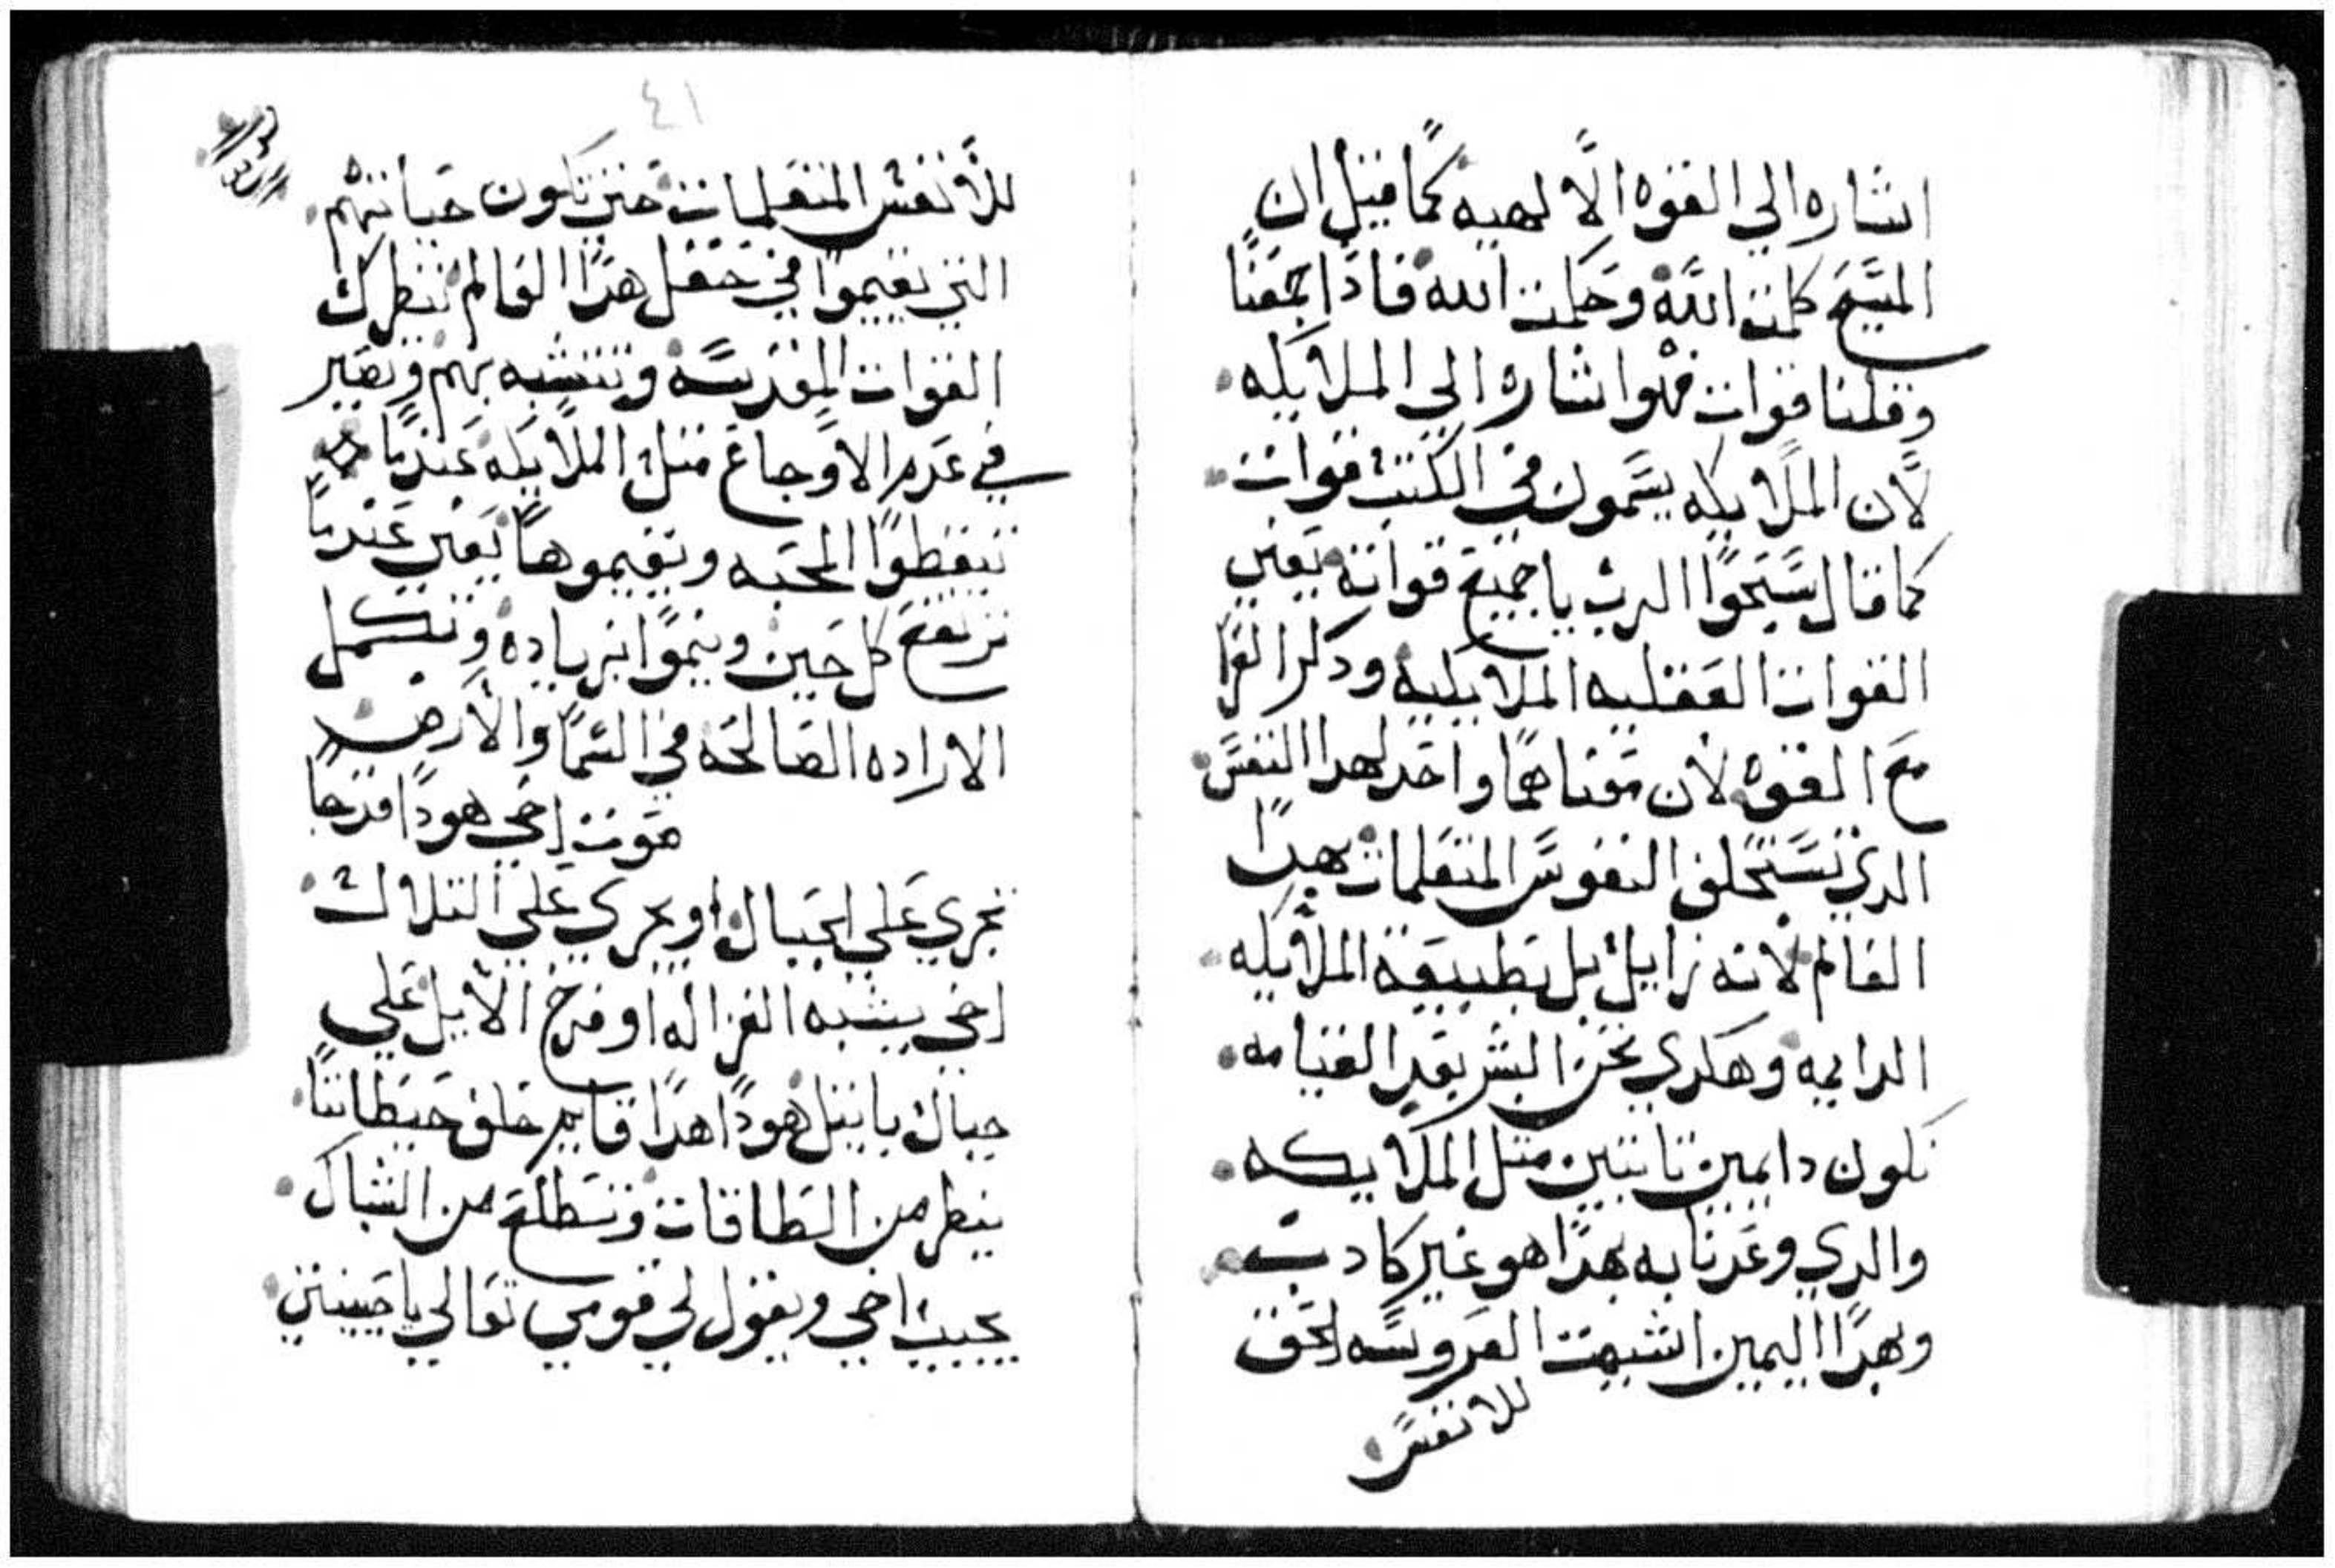 اشاره الي القوه الالهيه كما قيل ان
المسيح كلمت الله وحكمت الله فاذا جمعنا
وقلنا قوات فهوا شاره الي الملايكه
لان الملايكه يسمون في الكتب قوات
كما قال سبحوا الرب يا جميع قواته يعني
القوات العقليه الملايكيه ودكر القرا
مع القوه لان معناهما واحد لهدا النفس
الدي تستحلف النفوس المتعلمات بهدا
العالم لانه زايل بل بطبيعة الملايكه
الدايمه وهكدي نحن البشر بعد القيامه
نكون دايمين تابتين متل الملايكه
والدي وعدنا به بهدا هو غير كادب
وبهدا اليمين اشبهت العروسه لحق
للانفس
٤١
للانفس المتعلمات حتي تكون حياتهم
التي تقيموا في حقل هدا العالم تنظر ك
القوات المقدسه وتتشبه بهم وتصير
في عدم الاوجاع متل الملايكه عنديا
تيقظوا المحبه وتقيموها يعني عنديا
ترتفع كل حين وينموا بزياده وتكمل
الاراده الصالحه في السما والارض
صوت اخي هودا قد جا
تجري علي الجبال او يجري علي التلال
اخي يشبه الغزاله او فرخ الايل علي
جبال بايتل هودا هدا قايم خلف حيطاننا
ينظر من الطاقات وتتطلع من الشباك
يجيب اخي ويقول لي قومي تعالي يا حبيبتي